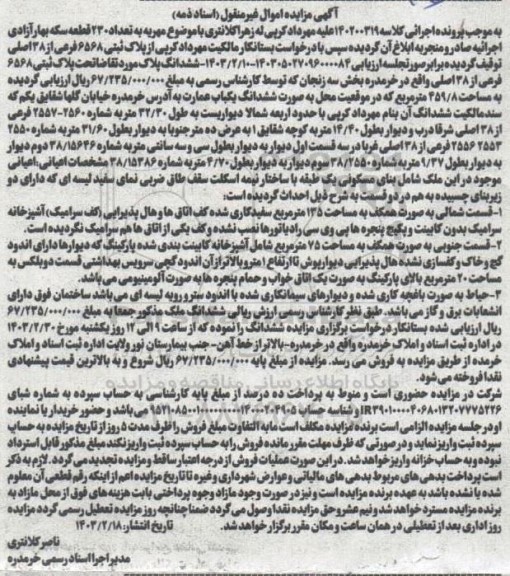 آگهی مزایده اموال غیرمنقول (اسناد ذمه)
به موجب پرونده اجرائی کلاسه ۱۴۰۲۰۰۳۱۹ علیه مهرداد کرپی له زهرا کلانتری با موضوع مهریه به تعداد ۲۳۰ قطعه سکه بهار آزادی
اجرائیه صادر و منجر به ابلاغ آن گردیده سپس با درخواست بستانکار مالکیت مهرداد کرپی از پلاک ثبتی ۶۵۶۸ فرعی از ۳۸ اصلی
توقیف گردیده برابر صورتجلسه ارزیابی ۱۴۰۳۰۵۰۲۷۰۹۶۰۰۰۰۸۴-۱۴۰۳/۲/۱۰ ششدانگ پلاک مورد تقاضا تحت پلاک ثبتی ۶۵۶۸
فرعی از ۳۸ اصلی واقع در خرمدره بخش سه زنجان که توسط کارشناس رسمی به مبلغ ۶۷/۲۳۵/۰۰۰/۰۰۰ ریال ارزیابی گردیده
به مساحت ۴۵۹/۸ مترمربع که در موقعیت محل به صورت ششدانگ یکباب عمارت به آدرس خرمدره خیابان گلها شقایق یکم که
سند مالکیت ششدانگ آن بنام مهرداد کرپی با حدود اربعه شمالا دیواریست به طول ۳۲/۳۰ متر به شماره ۲۵۶۰-۲۵۵۷ فرعی
از ۳۸ اصلی شرقا درب و دیوار بطول ۱۴/۴۰ متر به کوچه شقایق ۱ به عرض ده متر جنوبا به دیوار بطول ۳۱/۶۰ متر به شماره ۲۵۵۰
۲۵۵۳ ۲۵۵۶ فرعی از ۳۸ اصلی غربا در سه قسمت اول دیوار به دیوار بطول سی و سه سانتی متر به شماره ۳۸/۱۵۶۴۶ دوم دیوار
به دیوار بطول ۹/۳۷ متر به شماره ۳۸/۲۵۵۰ سوم دیوار به دیوار بطول ۴/۷۰ متر به شماره ۳۸/۱۵۳۸۶ مشخصات اعیانی: اعیانی
موجود در این ملک شامل بنای مسکونی یک طبقه با ساختار نیمه اسکلت سقف طاق ضربی نمای سفید لیسه ای که دارای دو
زیربنای چسبیده به هم در دو قسمت به شرح ذیل احداث گردیده است:
۱-قسمت شمالی به صورت همکف به مساحت ۱۳۵ مترمربع سفیدکاری شده کف اتاق ها و هال پذیرایی (کف سرامیک) آشپزخانه
سرامیک بدون کابینت و پکیج پنجره ها پی وی سی رادیاتورها نصب نشده و کف یکی از اتاق ها هم سرامیک نگردیده است.
۲-قسمت جنوبی به صورت همکف به مساحت ۷۵ مترمربع شامل آشپزخانه کابینت بندی شده پارکینگ که دیوارها دارای اندود
گچ و خاک و کفسازی نشده هال پذیرایی دیوارپوش تا ارتفاع ۱ متر و بالاتر از آن اندود گچی سرویس بهداشتی قسمت دوبلکس به
مساحت ۲۰ مترمربع بالای پارکینگ به صورت یک اتاق خواب و حمام پنجره ها به صورت آلومینیومی می باشد.
۳-حیاط به صورت باغچه کاری شده و دیوارهای سیمانکاری شده با اندود سترو رویه لیسه ای می باشد ساختمان فوق دارای
انشعابات برق و گاز می باشد. طبق نظر کارشناس رسمی ارزش ریالی ششدانگ ملک مذکور جمعا به مبلغ ۶۷/۲۳۵/۰۰۰/۰۰۰
ریال ارزیابی شده بستانکار درخواست برگزاری مزایده ششدانگ را نموده که از ساعت ۹ الی ۱۲ روز یکشنبه مورخ ۱۴۰۳/۳/۳۰
در اداره ثبت اسناد و املاک خرمدره واقع در خرمدره-بالاتر از خط آهن-جنب بیمارستان نور ولایت اداره ثبت اسناد و املاک
خرمدره از طریق مزایده به فروش می رسد. مزایده از مبلغ پایه ۶۷/۲۳۵/۰۰۰/۰۰۰ ریال شروع و به بالاترین قیمت پیشنهادی
نقدا فروخته می شود.
شرکت در مزایده حضوری است و منوط به پرداخت ده درصد از مبلغ پایه کارشناسی به حساب سپرده به شماره شبای
و شناسه حساب می باشد و حضور خریدار یا نماینده
او در جلسه مزایده الزامی است برنده مزایده مکلف است مابه التفاوت مبلغ فروش را ظرف مدت ۵ روز از تاریخ مزایده به حساب
سپرده ثبت واریز نماید و در صورتی که ظرف مهلت مقرر مانده فروش را به حساب سپرده ثبت واریز نکند مبلغ مذکور قابل استرداد
نبوده و به حساب خزانه واریز خواهد شد. در این صورت عملیات فروش از درجه اعتبار ساقط و مزایده تجدید می گردد. لازم به ذکر
است پرداخت بدهی های مربوط به بدهی های مالیاتی و عوارض شهرداری و غیره تا تاریخ مزایده اعم از اینکه رقم قطعی آن معلوم
شده یا نشده باشد به عهده برنده مزایده است و نیز در صورت وجود مازاد وجوه پرداختی بابت هزینه های فوق از محل مازاد به
برنده مزایده مسترد خواهد شد و نیم عشر و حق مزایده نقدا وصول می گردد ضمنا چنانچه روز مزایده تعطیل رسمی گردد مزایده
روز اداری بعد از تعطیلی در همان ساعت و مکان مقرر برگزار خواهد شد. تاریخ انتشار: ۱۴۰۳/۲/۱۸
ناصر کلانتری
مدیر اجرا اسناد رسمی خرمدره